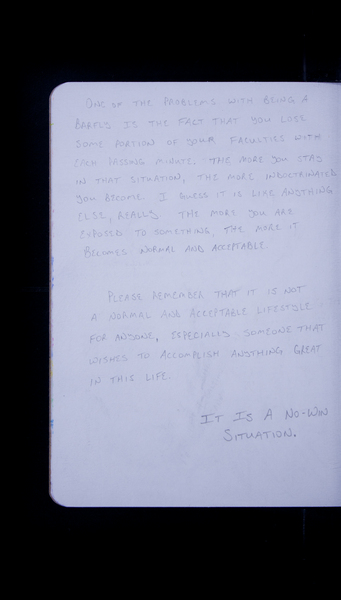 ONE OF THE PROBLEMS WITH BEING A
BARFLY IS THE FACT THAT YOU LOSE
SOME PORTION OF YOUR FACULTIES WITH
EACH PASSING MINUTE. THE MORE YOU STAY
IN THAT SITUATION, THE MORE INDOCTRINATED
YOU BECOME. I GUESS IT IS LIKE ANYTHING
ELSE, REALLY. THE MORE YOU ARE
EXPOSED TO SOMETHING, THE MORE IT
BECOMES NORMAL AND ACCEPTABLE.
PLEASE REMEMBER THAT IT IS NOT
A NORMAL AND ACCEPTABLE LIFESTYLE
FOR ANYONE, ESPECIALLY SOMEONE THAT
WISHES TO ACCOMPLISH ANYTHING GREAT
IN THIS LIFE.
IT IS A NO-WIN
SITUATION.